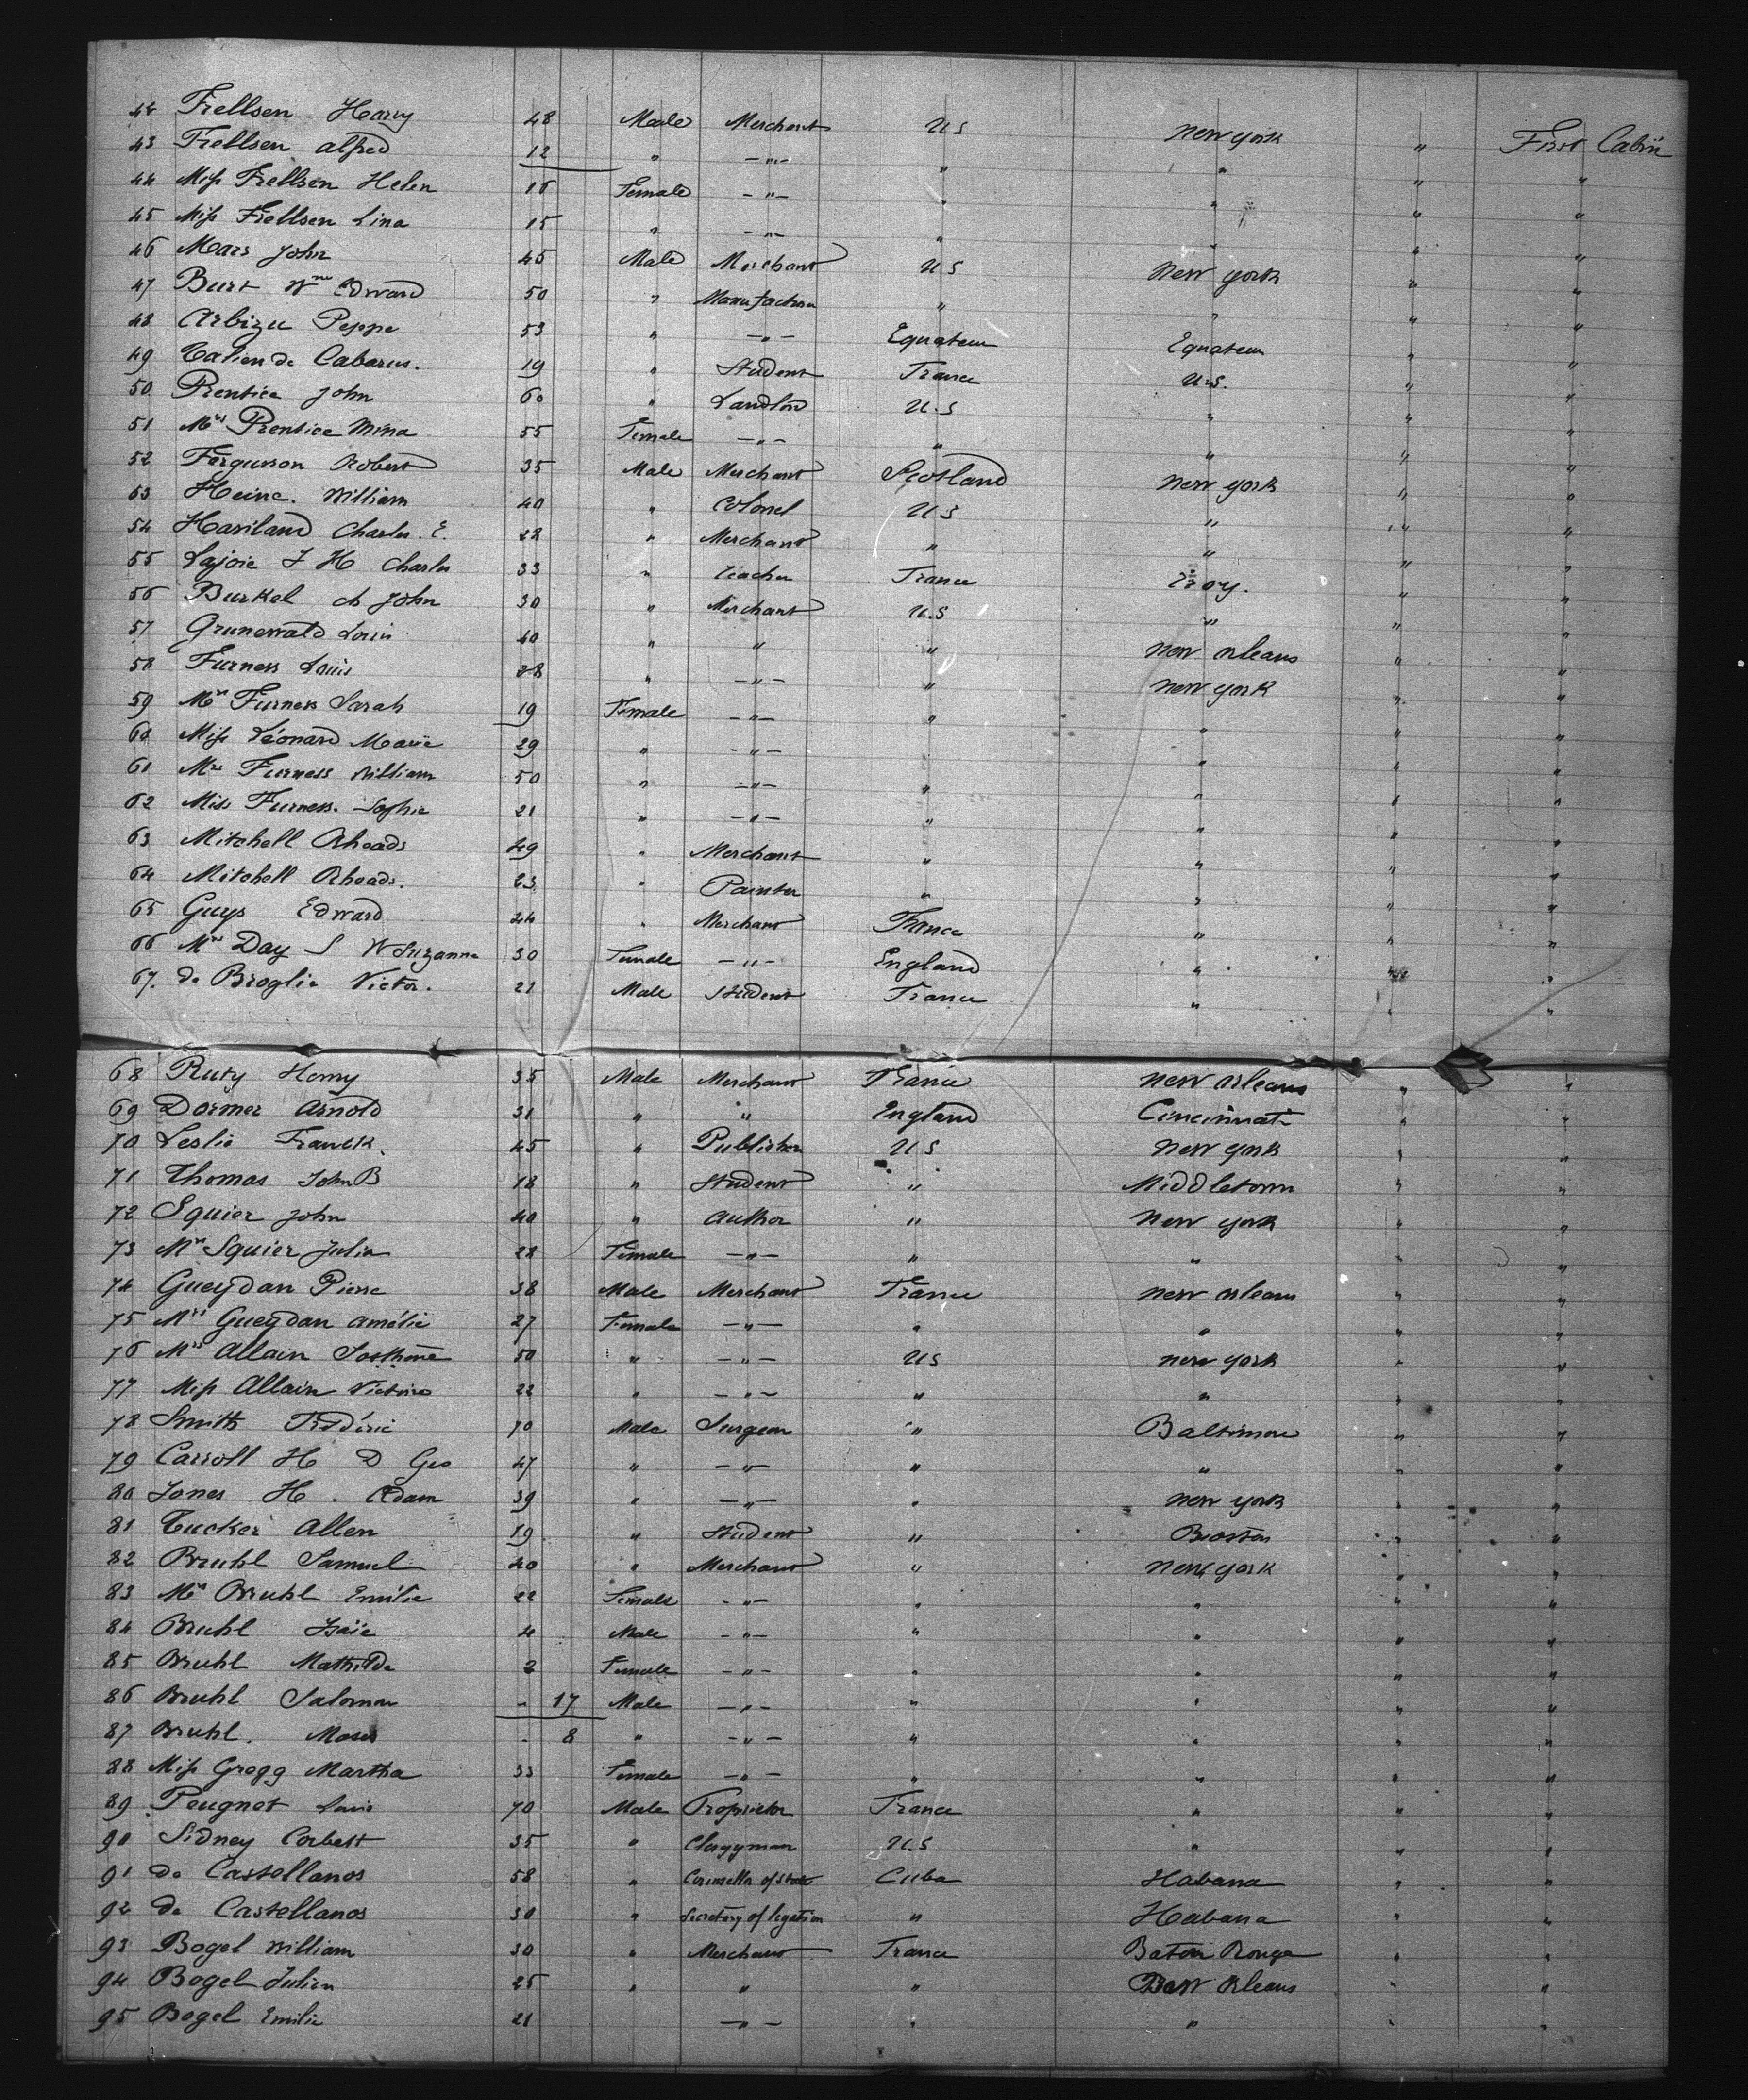 42 Frellsen Harry 48 Male Merchant US New York " First Cabin
43 Frellsen Alfred 12 " -"- " " " "
44 Miss Frellsen Helen 16 Female -"- " " " "
45 Miss Frellsen Lina 15 " -"- " " " "
46 Mars John 45 Male Merchant US New York " "
47 Burt Wm Edward 50 " Manufacturer " " " "
48 Arbizu Peppe 53 " -"- Equateur Equateur " "
49 Talien de Cabarus. 19 " Student France U.S. " "
50 Prentice John 60 " Landlord U.S " " "
51 Mrs Prentice Mina 55 Female -"- " " " "
52 Fergusson Robert 35 Male Merchant Scotland New York " "
53 Heine. William 40 " Colonel US " " "
54 Haviland Charles. E. 28 " Merchant " " " "
55 Lajoie J H Charles 33 " Teacher France Troy. " "
56 Burkel ch John 30 " Merchant U.S " " "
57 Grunewald Louis 40 " " " New Orleans " "
58 Furness Louis 28 " -"- " New York " "
59 Mrs Furness Sarah 19 Female -"- " " " "
60 Miss Léonard Marie 29 " -"- " " " "
61 Mrs Furness William 50 " -"- " " " "
62 Miss Furness. Sophie 21 " -"- " " " "
63 Mitchell Rhoads 49 " Merchant " " " "
64 Mitchell Rhoads. 23 " Painter " " " "
65 Guys Edward 24 " Merchant France " " "
66 Mrs Day S W Suzanna 30 Female -"- England " " "
67. de Broglie Victor. 21 Male Student France " " "
68 Ruty Henry 35 Male Merchant France New Orleans " "
69 Dormer Arnold 31 " " England Cincinnati " "
70 Leslie Franck. 45 " Publisher US New York " "
71 Thomas John B 18 " Student " Middletown " "
72 Squier John 40 " Author " New York " "
73 Mrs Squier Julia 28 Female -"- " " " "
74 Gueydan Pierre 38 Male Merchant France New Orleans " "
75 Mrs Gueydan Amélie 27 Female -"- " " " "
76 Mrs Allain 50 " -"- US New York " "
77 Miss Allain Victoire 22 " -"- " " " "
78 Smith Frédéric 70 Male Surgeon " Baltimore " "
79 Carroll H D Geo 47 " -"- " " " "
80 Jones H. Adam 39 " -"- " New York " "
81 Tucker Allen 19 " Student " Boston " "
82 Bruhl Samuel 40 " Merchant " New York " "
83 Mrs Bruhl Emilie 22 Female -"- " " " "
84 Bruhl Isaïe 4 Male -"- " " " "
85 Bruhl Mathilde 2 Female -"- " " " "
86 Bruhl Salomon - 17 Male -"- " " " "
87 Bruhl. Moses - 8 " -"- " " " "
88 Miss Gregg Martha 33 Female -"- " " " "
89 Peugnet Louis 70 Male Proprietor France " " "
90 Sidney Corbett 35 " Clergyman U.S " " "
91 de Castellanos 58 " Counsellor of State Cuba Habana " "
92 de Castellanos 30 " Secretary of legation " Habana " "
93 Bogel William 30 " Merchant France Baton Rouge " "
94 Bogel Julien 25 " " " New Orleans " "
95 Bogel Emilie 21 -"- " " " "